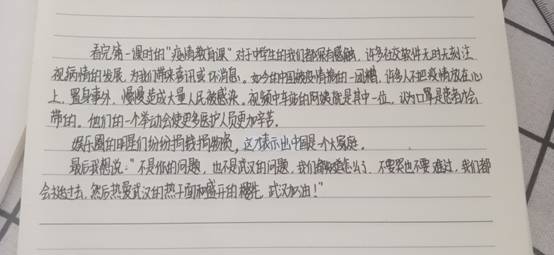 看完第一课时的“疫情教育课”对于中学生的我们都深有感触，许多社交软件无时无刻注
视病情的发展，为我们带来喜讯或坏消息。如今的中国被疫情搞的一团糟，许多人不把疫情放在心
上，置身事外，慢慢造成大量人民被感染。视频中车站的阿姨就是其中一位，认为口罩是患者才会
带的。他们的一个举动会使更多医护人员更加辛苦。
娱乐圈的明星们纷纷捐钱捐物资，这才表示出中国是一个大家庭。
最后我想说：“不是你的问题，也不是武汉的问题，我们都知道怎么了，不要哭也不要难过，我们都
会挺过去，然后热爱武汉的热干面和盛开的樱花，武汉加油！”